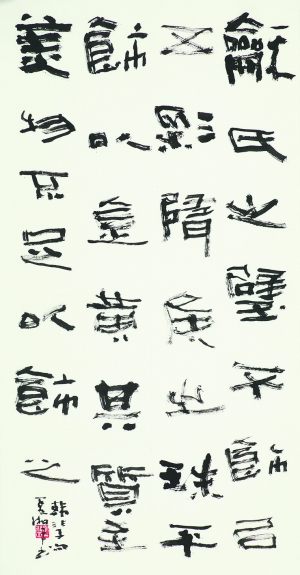 龢氏之璧不飾㠯
五彩隋侯之珠不
飾以金黄其質至
美物不足以飾之
韓非子句
夏湘平书